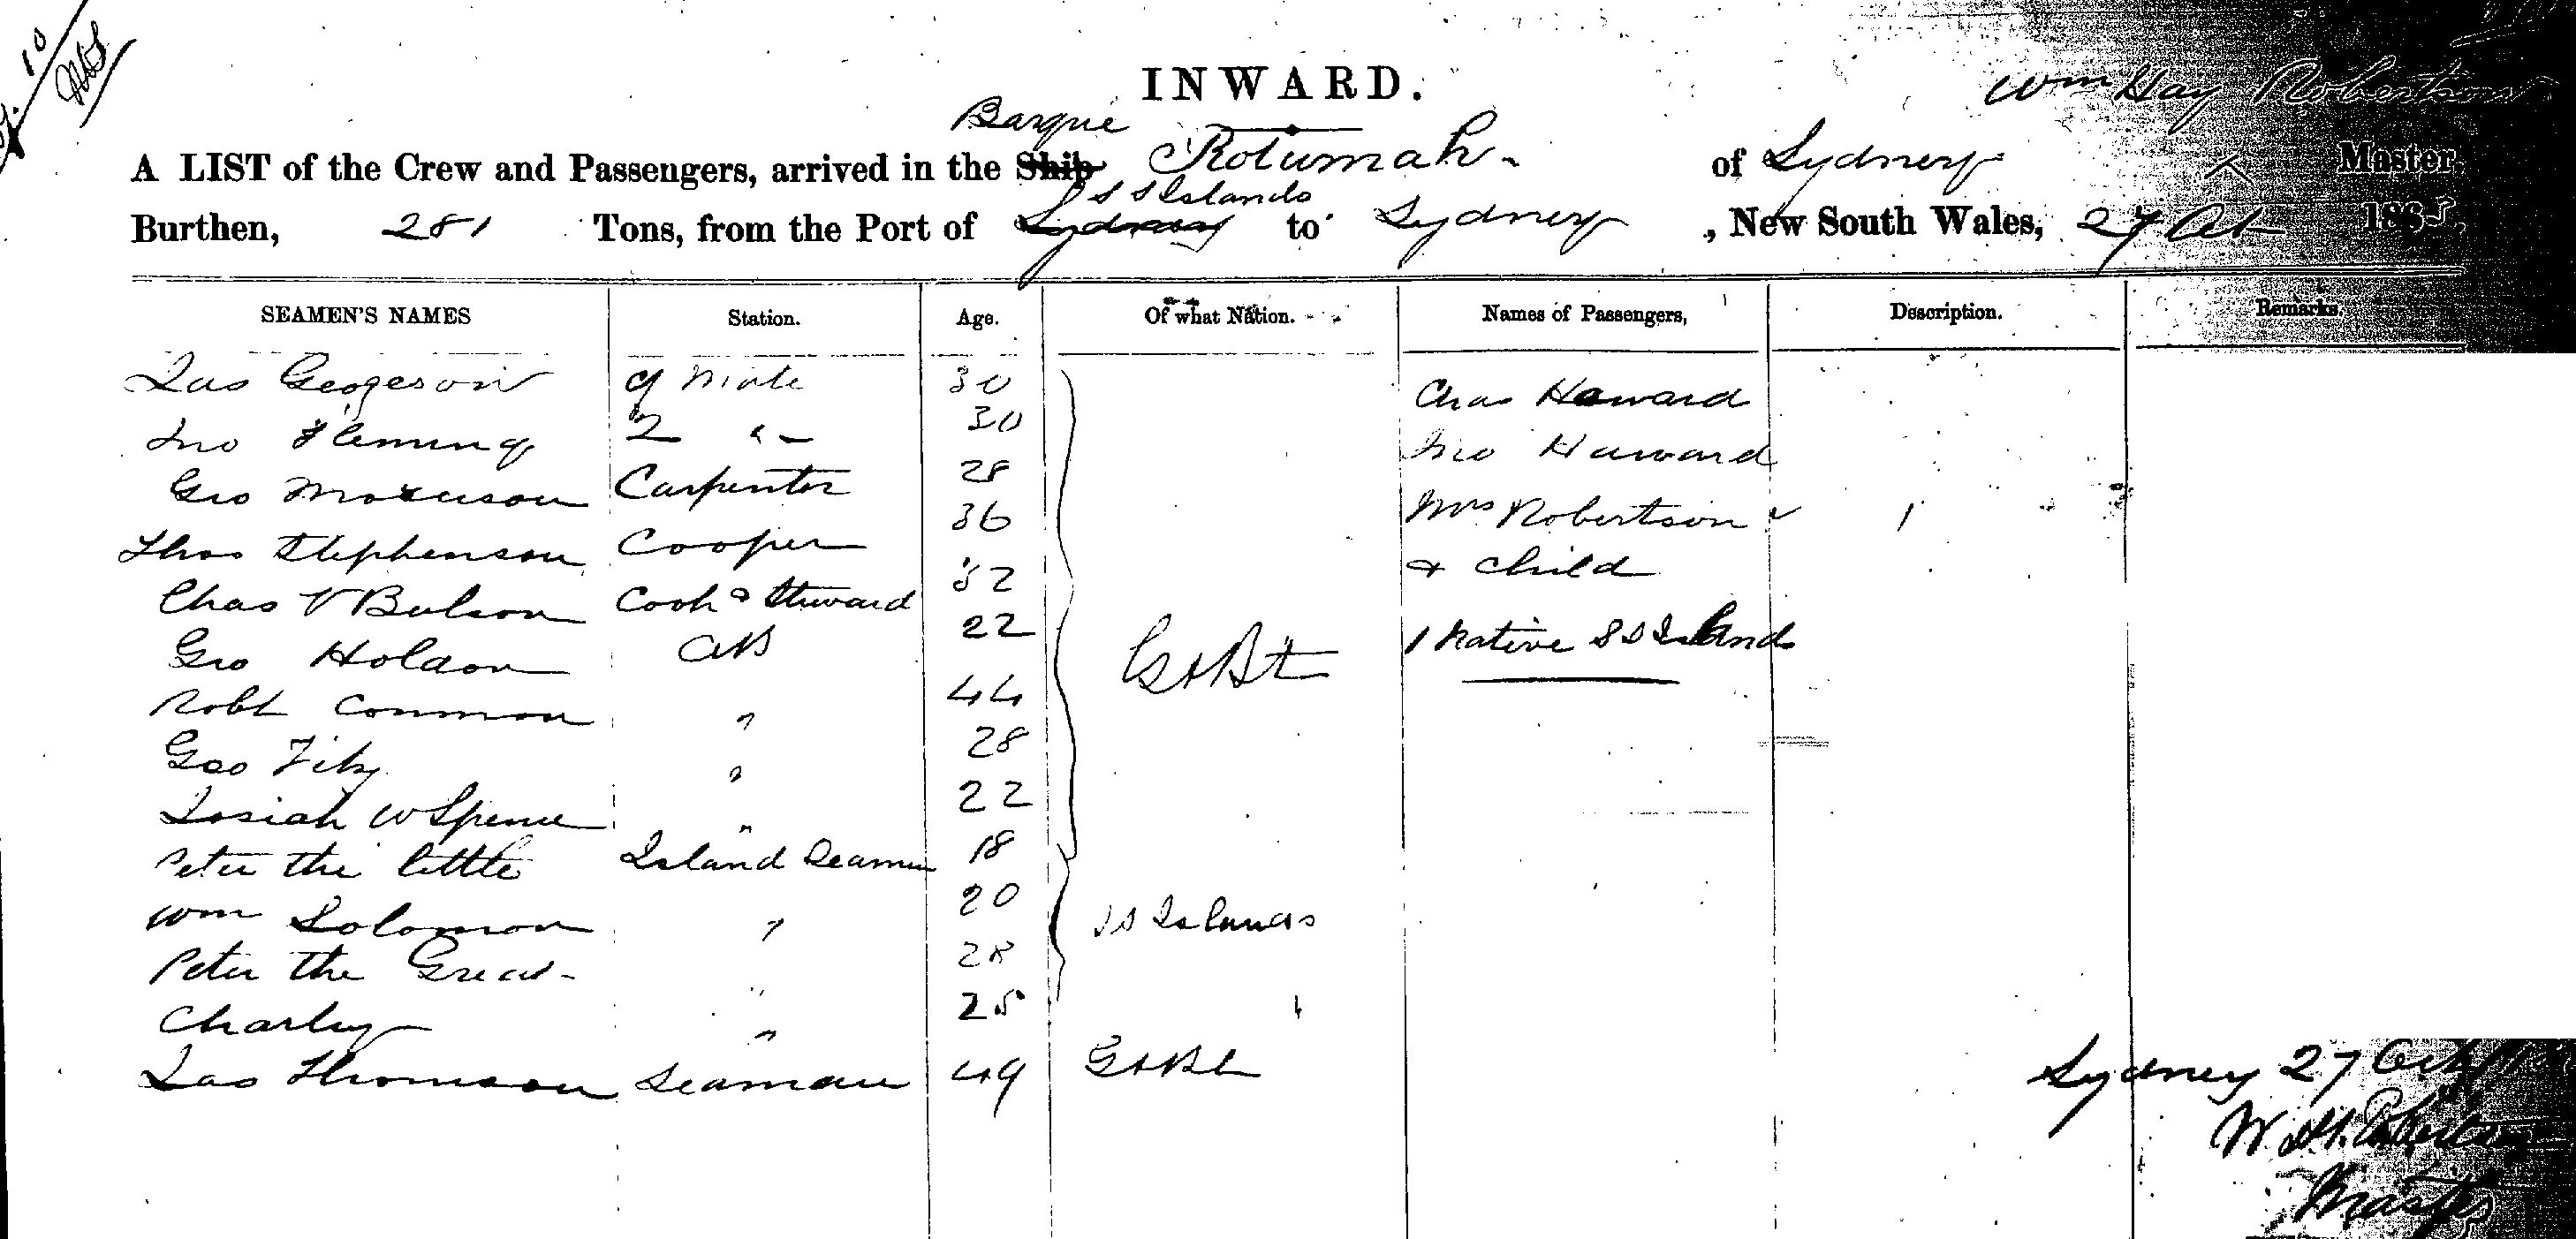 INWARD.
Wm Hay Robertson
Barque
A LIST of the Crew and Passengers, arrived in the Ship Rotumah of Sydney Master
S S Islands
Burthen, 281 Tons, from the Port of Sydney to Sydney, New South Wales, 27 Oct 1865.
SEAMEN'S NAMES Station. Age. Of what Nation. Names of Passengers, Description. Remarks.
Jas Geogeson Mate 30 Chas Haward
Jno Fleming 2 " 30 Jno Haward
Geo Carpenter 28 Mrs Robertson 1
Thos Stephenson Cooper 36 & Child
Chas V Bulson Cook & Steward 32
Geo Holdon AB 22 Gt Bt 1 Native S S Island
Robt Common " 44
Geo " 28
Josiah W Spence " 22
Peter the little Island Seamen 18
Wm Solomon " 20 S S Islands
Peter the Great " 28
Charley " 25
Jas Thomson Seaman 49 Gt Bt
Sydney 27 Oct
W. H. Robertson
Master